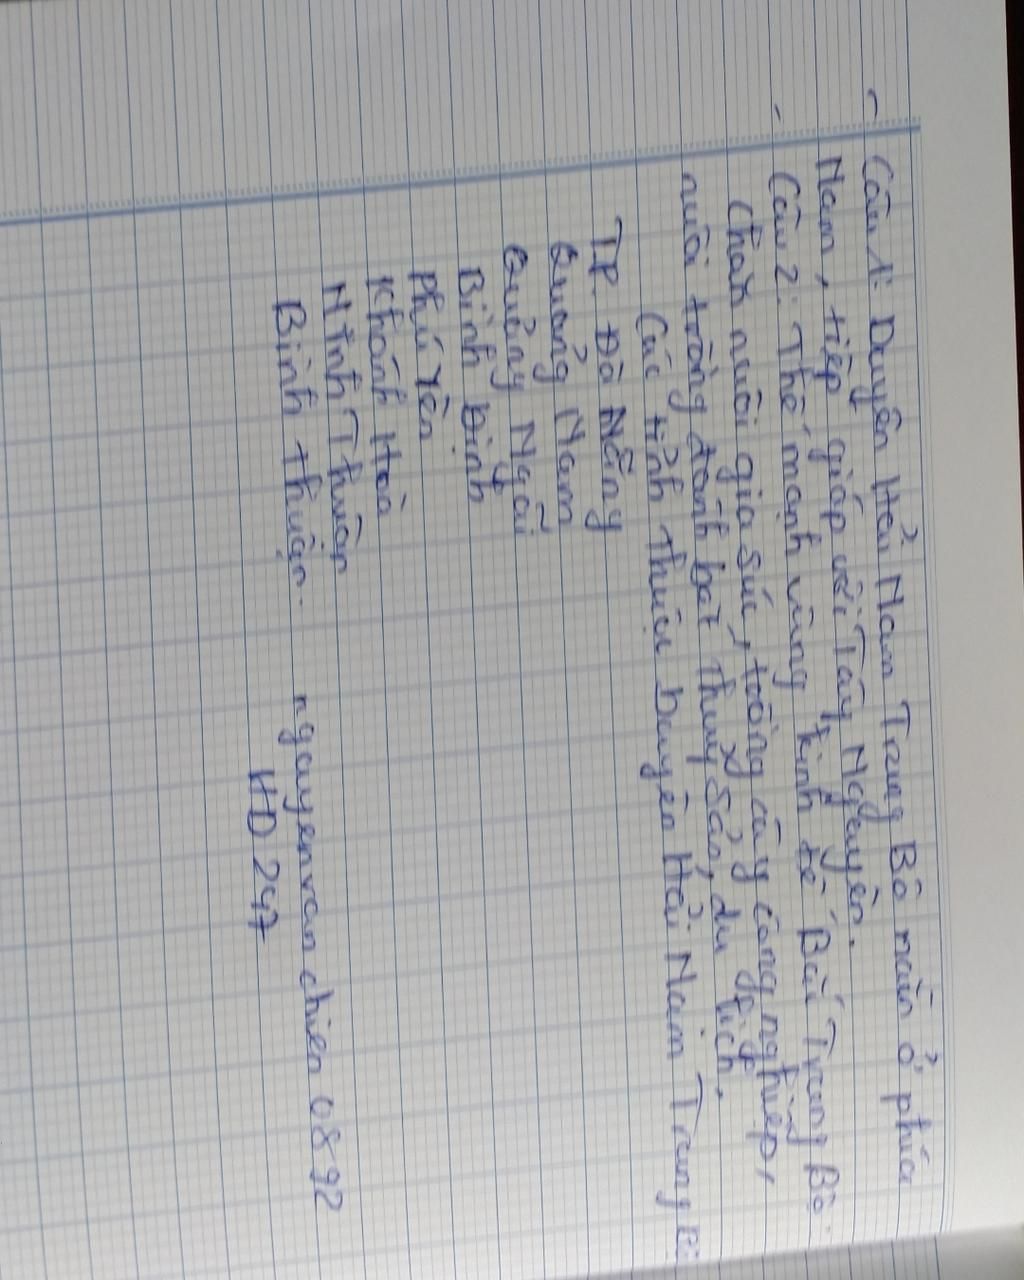 - Câu 1: Duyên Hải Nam Trung Bộ nằm ở phía
Nam, tiếp giáp với Tây Nguyên.
- Câu 2: Thế mạnh vùng kinh tế Bắc Trung Bộ.
chăn nuôi gia súc, trồng cây công nghiệp,
nuôi trồng đánh bắt thuỷ sản, du lịch,
Các tỉnh thuộc Duyên Hải Nam Trung B
TP. Đà Nẵng
Quảng Nam
Quảng Ngãi
Bình Định
Phú Yên
Khánh Hoà
Ninh Thuận
Bình Thuận.
nguyenvanchien 0892
HD 247